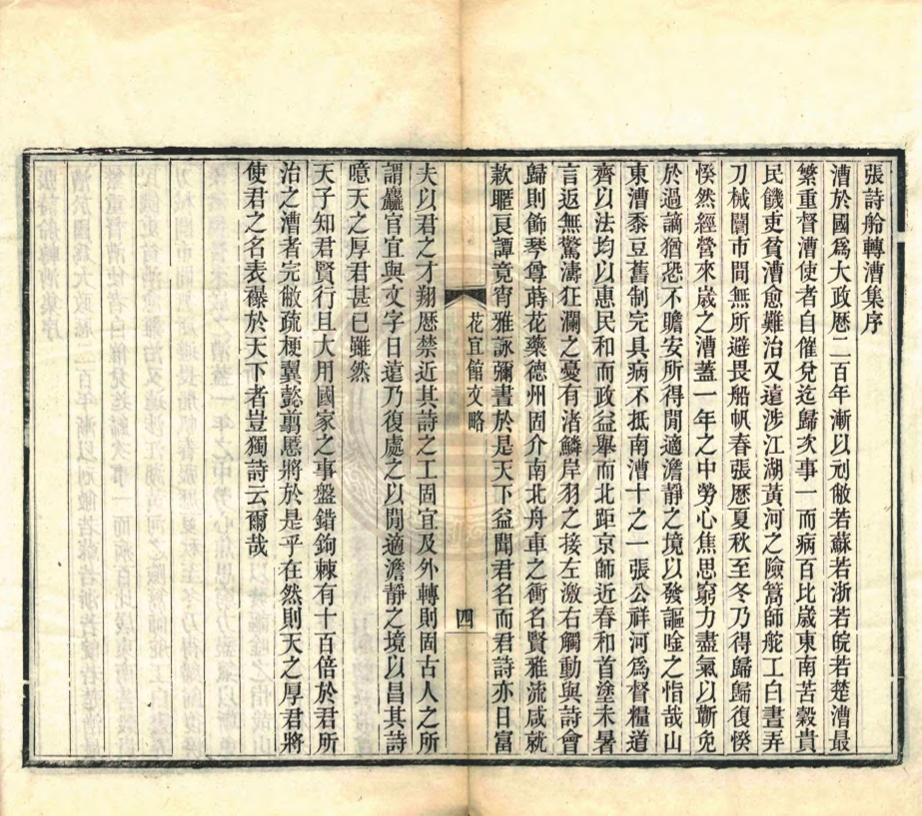 張詩舲轉漕集序
漕於國爲大政歷二百年漸以刓敝若蘇若浙若皖若楚漕最
繁重督漕使者自催兌迄歸次事一而病百比歲東南苦穀貴
民饑吏貧漕愈難治又遠涉江湖黃河之險篙師舵工白晝弄
刀械鬬市間無所避畏船帆春張歷夏秋至冬乃得歸歸復惸
惸然經營來歲之漕蓋一年之中勞心焦思窮力盡氣以蘄免
於過謫猶恐不贍安所得閒適澹靜之境以發謳唫之恉哉山
東漕黍豆舊制完具病不抵南漕十之一張公祥河爲督糧道
齊以法均以惠民和而政益舉而北距京師近春和首塗未暑
言返無驚濤狂瀾之憂有渚鱗岸羽之接左激右觸動與詩會
歸則飾琴尊蒔花藥德州固介南北舟車之衝名賢雅流咸就
款暱良譚竟宵雅詠彌晝於是天下益聞君名而君詩亦日富
花宜館文略
四
夫以君之才翔歷禁近其詩之工固宜及外轉則固古人之所
謂麤官宜與文字日遠乃復處之以閒適澹靜之境以昌其詩
噫天之厚君甚已雖然
天子知君賢行且大用國家之事盤錯鉤棘有十百倍於君所
治之漕者完敝疏梗翼懿翦慝將於是乎在然則天之厚君將
使君之名表襮於天下者豈獨詩云爾哉